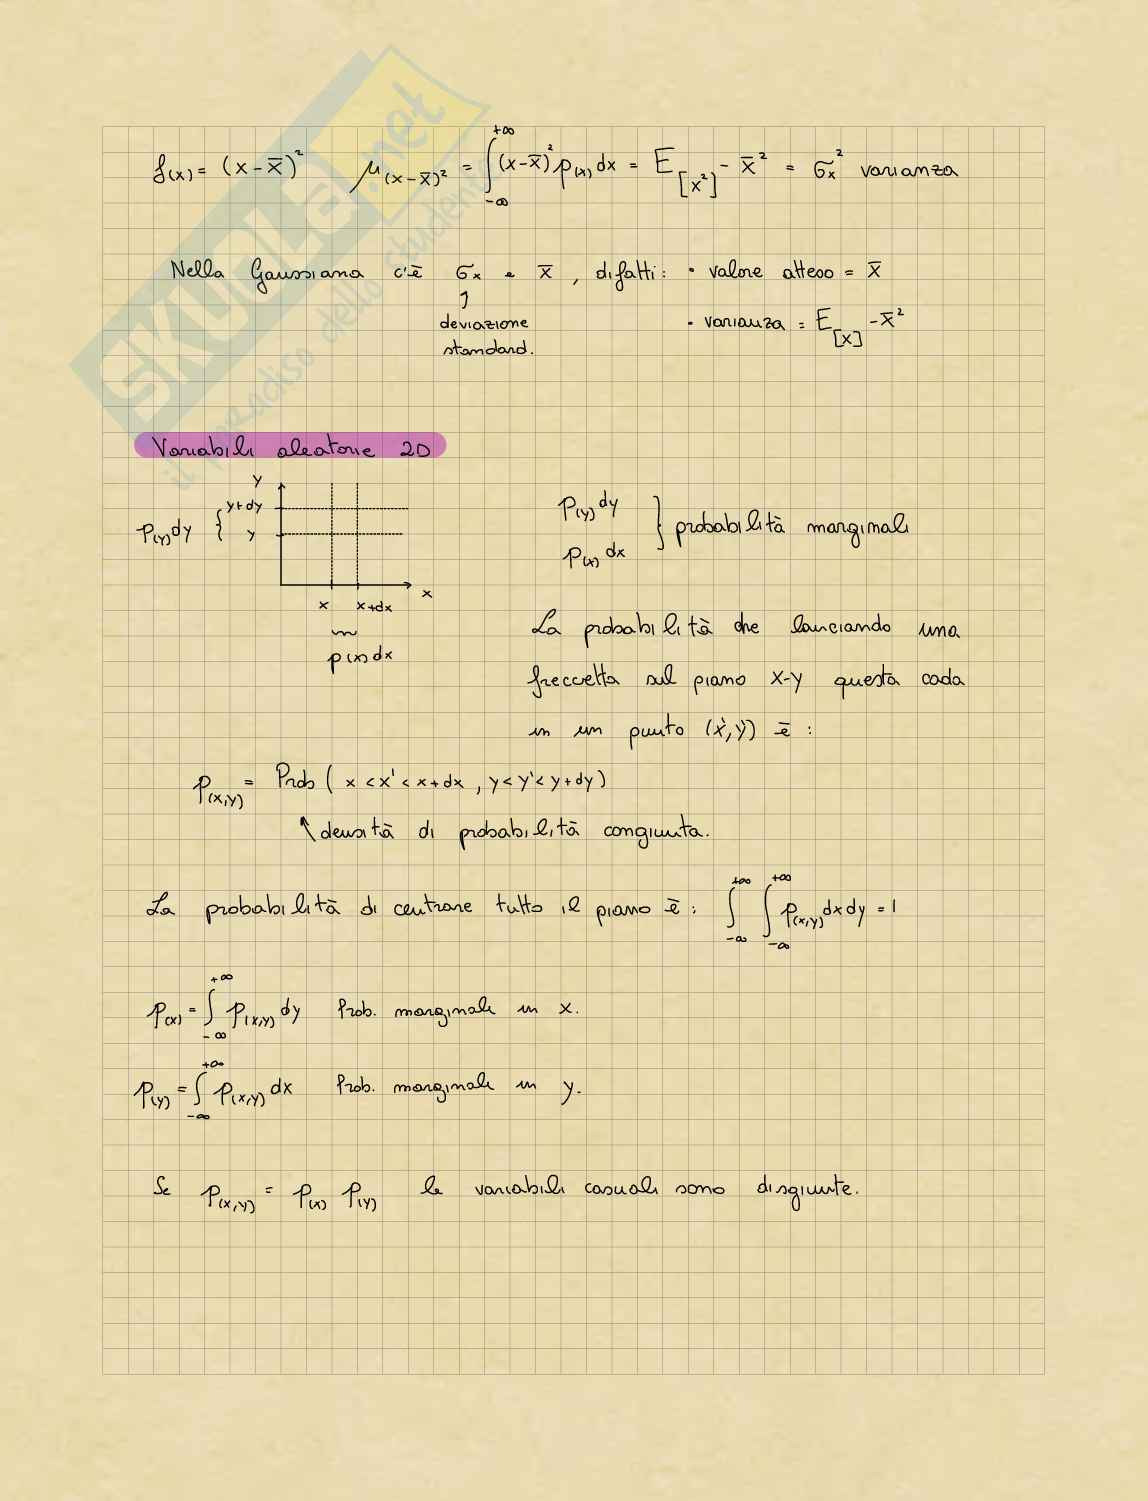 f(x) = (x-x̄)² μ(x-x̄)² = ∫_{-∞}^{+∞} (x-x̄)² p(x) dx = E[x²] - x̄² = σx² varianza
Nella Gaussiana c'è σx e x̄ , difatti: • valore atteso = x̄
↑
deviazione
standard.
• varianza = E[x] - x̄²
Variabili aleatorie 2D
y
y+dy
p(y)dy {
y
x
x x+dx
p(x)dx
p(y)dy
p(x)dx
} probabilità marginali
La probabilità che lanciando una
freccetta sul piano x-y questa cada
in un punto (x',y') è :
p(x,y) = Prob ( x < x' < x+dx , y < y' < y+dy )
↑ densità di probabilità congiunta.
La probabilità di centrare tutto il piano è : ∫_{-∞}^{+∞} ∫_{-∞}^{+∞} p(x,y) dx dy = 1
p(x) = ∫_{-∞}^{+∞} p(x,y) dy Prob. marginale in x.
p(y) = ∫_{-∞}^{+∞} p(x,y) dx Prob. marginale in y.
Se p(x,y) = p(x) p(y) le variabili casuali sono disgiunte.
SKUOLA.net
il paradiso dello studente